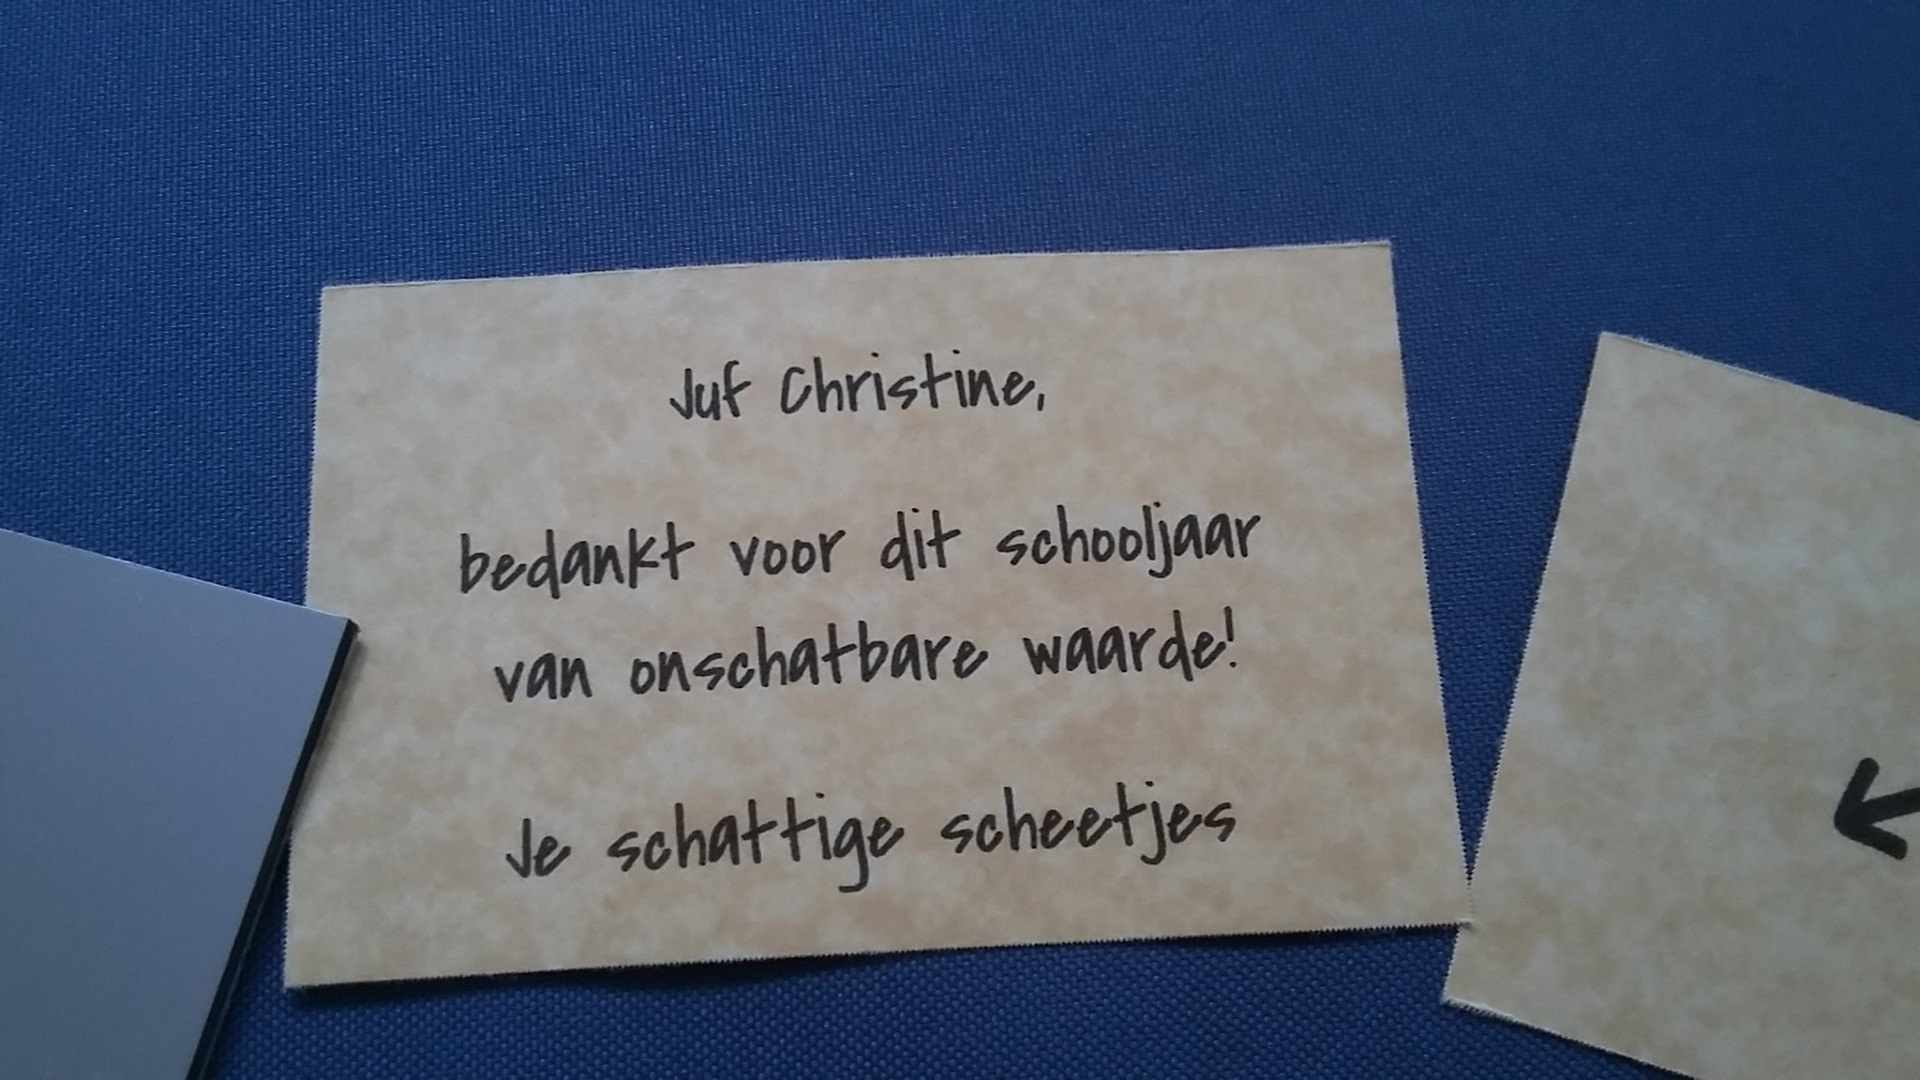 Juf Christine,
bedankt voor dit schooljaar
van onschatbare waarde!
Je schattige scheetjes